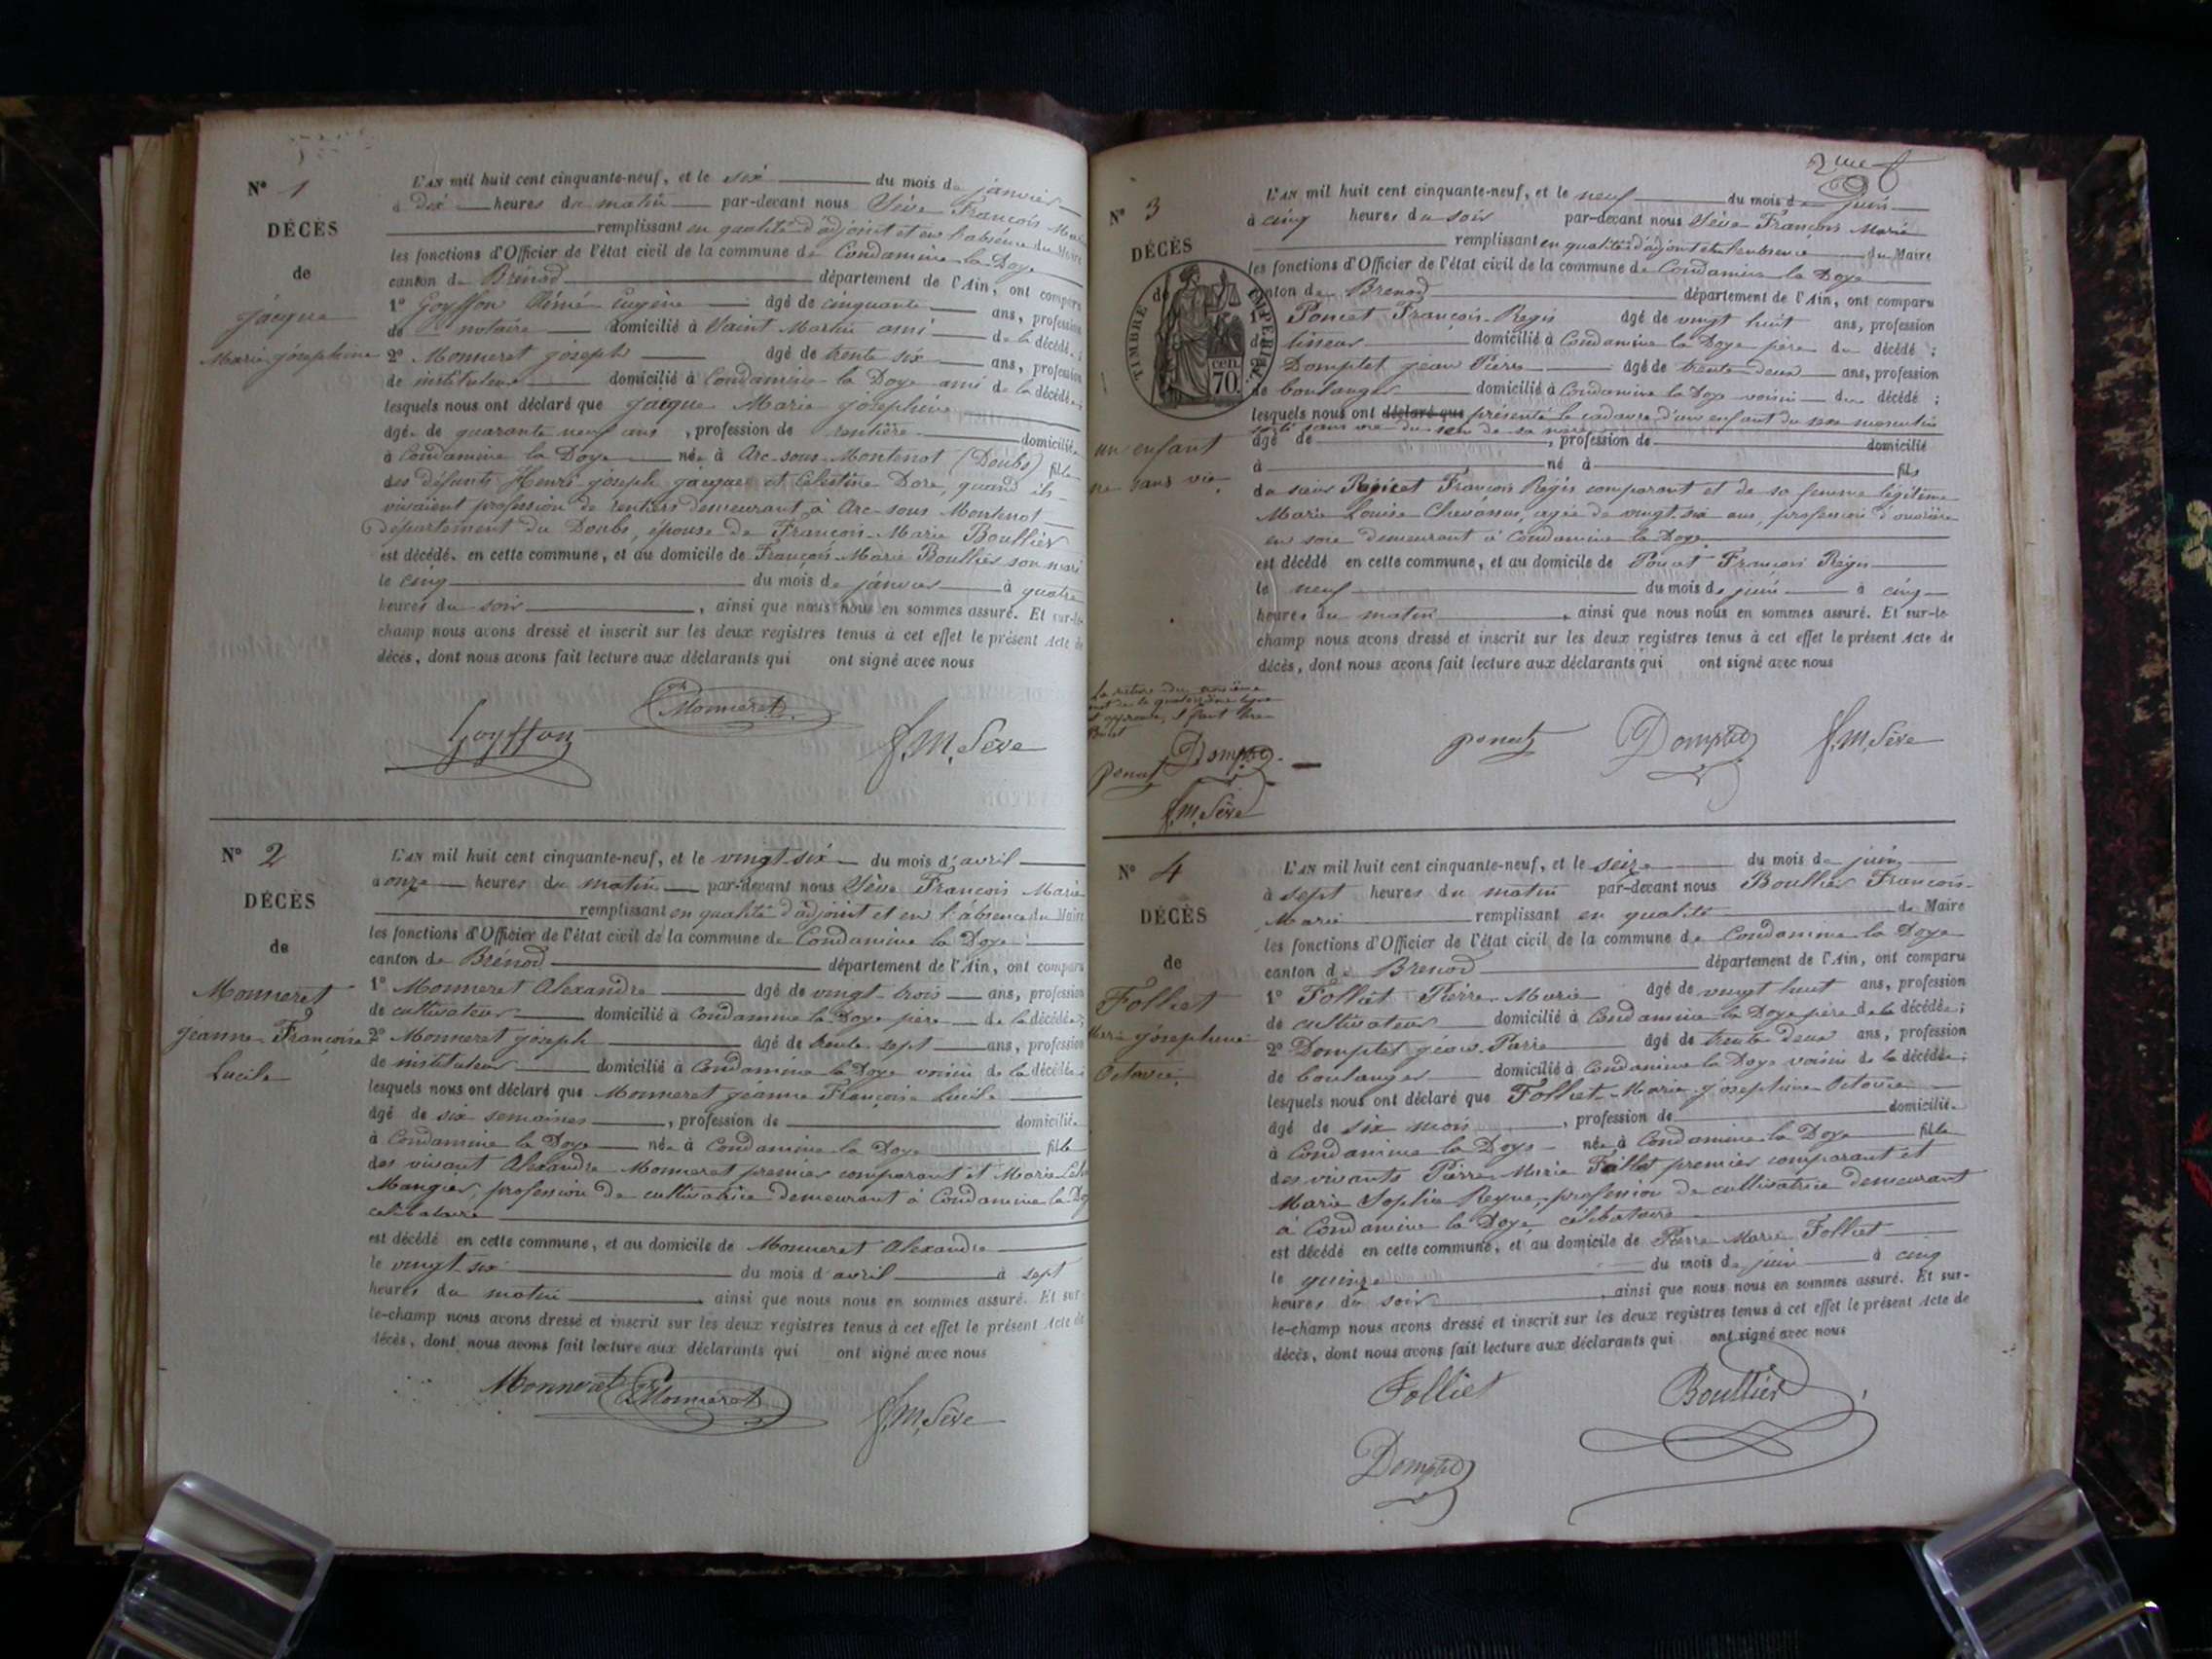 N° 1
DÉCÈS
de
Jacque
Marie Joséphine
L'AN mil huit cent cinquante-neuf, et le six du mois de janvier
à Dix heures du matin par-devant nous Sève François Marie
remplissant en qualité d'adjoint et en l'absence du Maire
les fonctions d'Officier de l'état civil de la commune de Condamine la Doye
canton de Brénod département de l'Ain, ont comparu
1° Goyffon Aimé Eugène âgé de cinquante ans, profession
de notaire domicilié à Saint Martin ami de la décédée;
2° Monneret Joseph âgé de trente six ans, profession
de instituteur domicilié à Condamine la Doye ami de la décédée;
lesquels nous ont déclaré que Jacque Marie Joséphine
âgée de quarante neuf ans, profession de rentière domiciliée
à Condamine la Doye née à Arc-sous-Montenot (Doubs) fille
des défunts Henri Joseph Jacques et Célestine Dore, quand ils
vivaient profession de rentiers demeurant à Arc-sous-Montenot
département du Doubs, épouse de François-Marie Boullier
est décédée en cette commune, et au domicile de François-Marie Boullier son mari
le cinq du mois de janvier à quatre
heures du soir, ainsi que nous nous en sommes assuré. Et sur-le-
champ nous avons dressé et inscrit sur les deux registres tenus à cet effet le présent Acte de
décès, dont nous avons fait lecture aux déclarants qui ont signé avec nous
Monneret
Goyffon
f. m. Sève
N° 2
DÉCÈS
de
Monneret
Jeanne-Françoise
Lucile
L'AN mil huit cent cinquante-neuf, et le vingt-six du mois d'avril
à onze heures du matin par-devant nous Sève François Marie
remplissant en qualité d'adjoint et en l'absence du Maire
les fonctions d'Officier de l'état civil de la commune de Condamine la Doye
canton de Brénod département de l'Ain, ont comparu
1° Monneret Alexandre âgé de vingt-trois ans, profession
de cultivateur domicilié à Condamine la Doye père de la décédée;
2° Monneret Joseph âgé de trente-sept ans, profession
de instituteur domicilié à Condamine la Doye voisin de la décédée;
lesquels nous ont déclaré que Monneret Jeanne Françoise Lucile
âgé de six semaines, profession de domiciliée
à Condamine la Doye née à Condamine la Doye fille
des vivant Alexandre Monneret premier comparant et Marie
Mangier, profession de cultivatrice demeurant à Condamine la Doye
célibataire
est décédé en cette commune, et au domicile de Monneret Alexandre
le vingt-six du mois d'avril à sept
heures du matin, ainsi que nous nous en sommes assuré. Et sur-
le-champ nous avons dressé et inscrit sur les deux registres tenus à cet effet le présent Acte de
décès, dont nous avons fait lecture aux déclarants qui ont signé avec nous
Monneret Monneret
f. m. Sève
2me f
N° 3
DÉCÈS
de
TIMBRE IMPÉRIAL
70 cen.
un enfant
né sans vie
L'AN mil huit cent cinquante-neuf, et le neuf du mois de juin
à cinq heures du soir par-devant nous Sève François Marie
remplissant en qualité d'adjoint et en l'absence du Maire
les fonctions d'Officier de l'état civil de la commune de Condamine la Doye
canton de Brenod département de l'Ain, ont comparu
1° Poncet François-Régis âgé de vingt huit ans, profession
de tisseur domicilié à Condamine la Doye père du décédé;
Domptet Jean Pierre âgé de trente-deux ans, profession
de boulanger domicilié à Condamine la Doye voisin du décédé;
lesquels nous ont déclaré que présenté le cadavre d'un enfant du sexe masculin
sorti sans vie du sein de sa mère
âgé de, profession de domicilié
à né à fils
du sieur Poncet François Régis comparant et de sa femme légitime
Marie Louise Chevassus, agée de vingt-six ans, profession d'ouvrière
en soie demeurant à Condamine la Doye
est décédé en cette commune, et au domicile de Poncet François Régis
le neuf du mois de juin à cinq
heures du matin, ainsi que nous nous en sommes assuré. Et sur-le-
champ nous avons dressé et inscrit sur les deux registres tenus à cet effet le présent Acte de
décès, dont nous avons fait lecture aux déclarants qui ont signé avec nous
La rature du troisième
mot de la quatorzième ligne
est approuvée, il faut lire
Poncet
Poncet Domptet
f. m. Sève
Poncet Domptet f. m. Sève
N° 4
DÉCÈS
de
Folliet
Marie Joséphine
Octavie
L'AN mil huit cent cinquante-neuf, et le seize du mois de juin
à sept heures du matin par-devant nous Boullier François-
Marie remplissant en qualité de Maire
les fonctions d'Officier de l'état civil de la commune de Condamine la Doye
canton de Brenod département de l'Ain, ont comparu
1° Folliet Pierre-Marie âgé de vingt huit ans, profession
de cultivateur domicilié à Condamine la Doye père de la décédée;
2° Domptet Jean-Pierre âgé de trente deux ans, profession
de boulanger domicilié à Condamine la Doye voisin de la décédée;
lesquels nous ont déclaré que Folliet Marie Joséphine Octavie
âgé de six mois, profession de domiciliée
à Condamine la Doye née à Condamine la Doye fille
des vivants Pierre-Marie Folliet premier comparant et
Marie Sophie Reyne, profession de cultivatrice demeurant
à Condamine la Doye célibataire
est décédé en cette commune, et au domicile de Pierre Marie Folliet
le quinze du mois de juin à cinq
heures du soir, ainsi que nous nous en sommes assuré. Et sur-
le-champ nous avons dressé et inscrit sur les deux registres tenus à cet effet le présent Acte de
décès, dont nous avons fait lecture aux déclarants qui ont signé avec nous
Folliet Boullier
Domptet